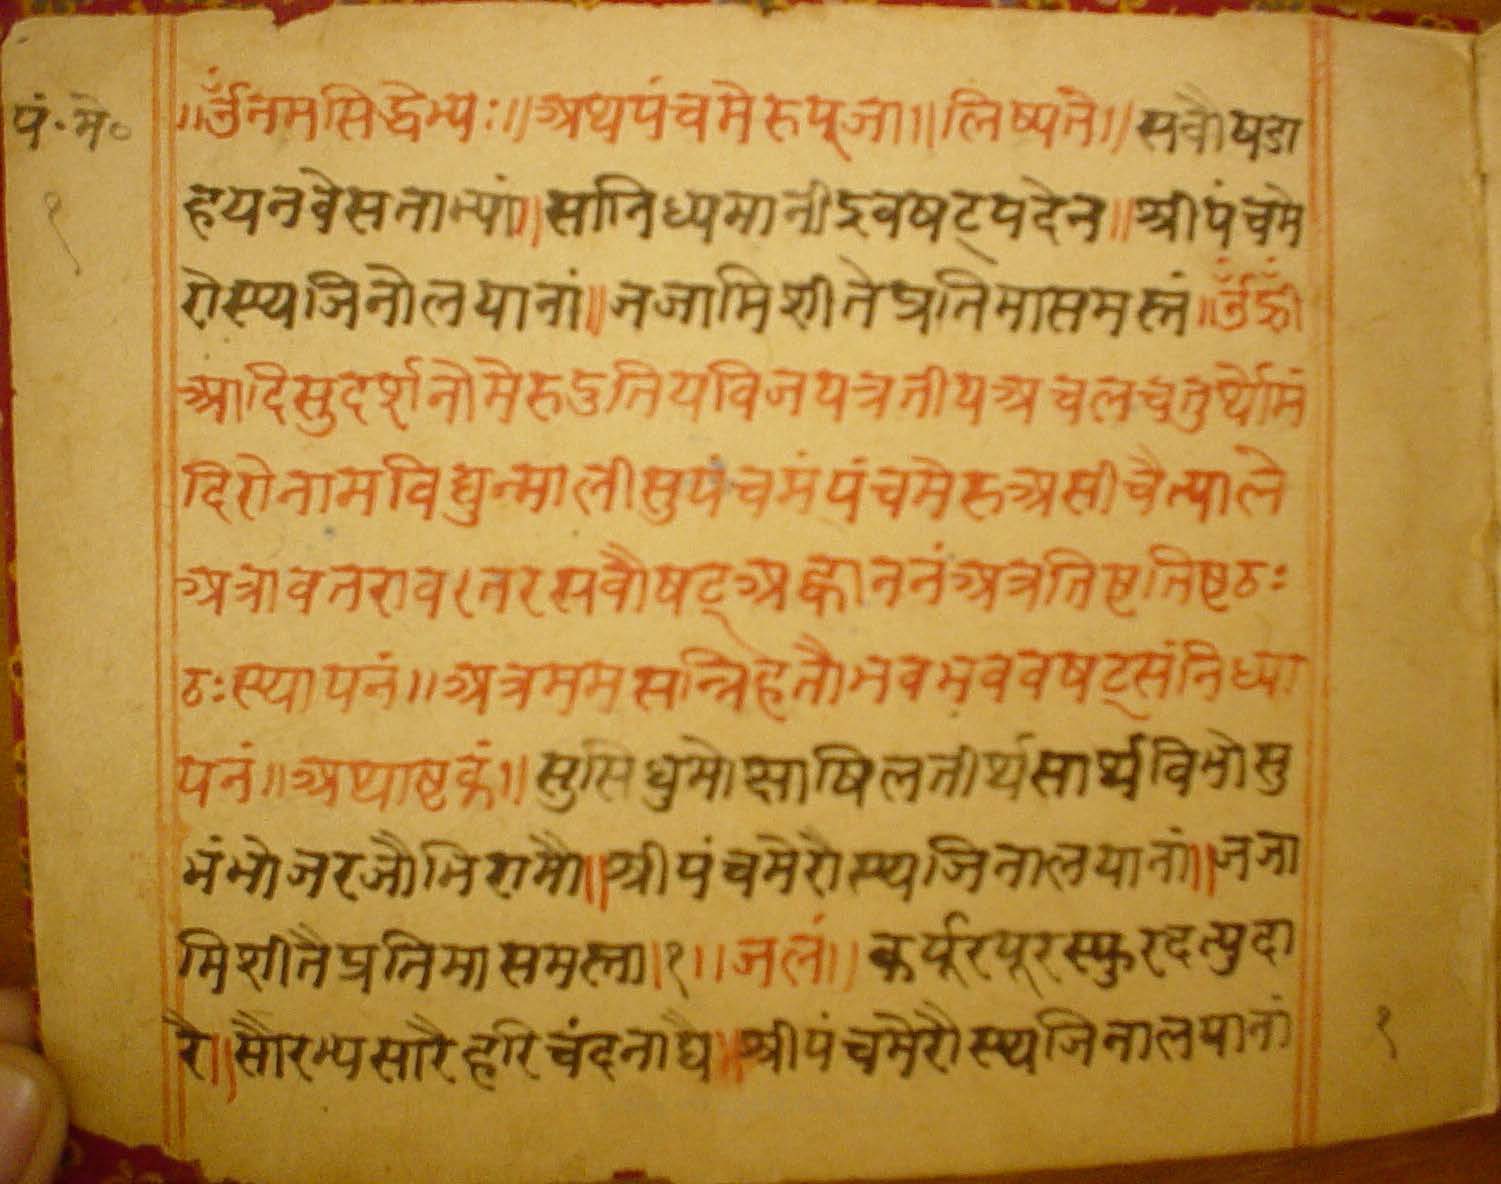 पं॰मे॰
१
॥ॐनमसिद्धेभ्यः॥अथपंचमेरुपूजा॥लिष्यते॥सवौषडा
हयनवेसनाभ्यां॥सांनिध्यमानीइवषट्पदेन॥श्रीपंचमे
रोस्थजिनोलयानां॥जजामिशीतेप्रतिमासमस्तं॥ॐह्रीं
आदिसुदर्शनोमेरुऽतियविजयत्रतीयअचलचतुर्थोमं
दिरोनामविद्युन्मालीसुपंचमंपंचमेरुअसीचैत्याले
अत्रावतरावरतरसवौषट्अह्वाननंअत्रतिष्टतिष्टठः
ठःस्थापनं॥अत्रममसन्निहतौभवभववषट्संनिध्या
पनं॥अथाष्टकं॥सुसिधुमोसाषिलतीर्थसार्थविभोसु
भंभोजरजौभिरामौ॥श्रीपंचमेरौस्थजिनालयानां॥जजा
मिशीतैप्रतिमासमस्ता॥१॥जलं॥कर्पूरपूरस्फुरदत्युदा
रै॥सौरभ्यसारैहरिचंदनाद्यै॥श्रीपंचमेरौस्थजिनालयानां
१